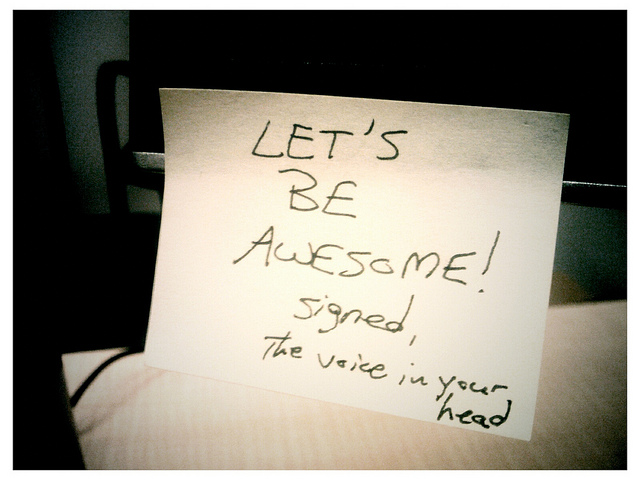 LET'S
BE
AWESOME!
signed,
The voice in your
head